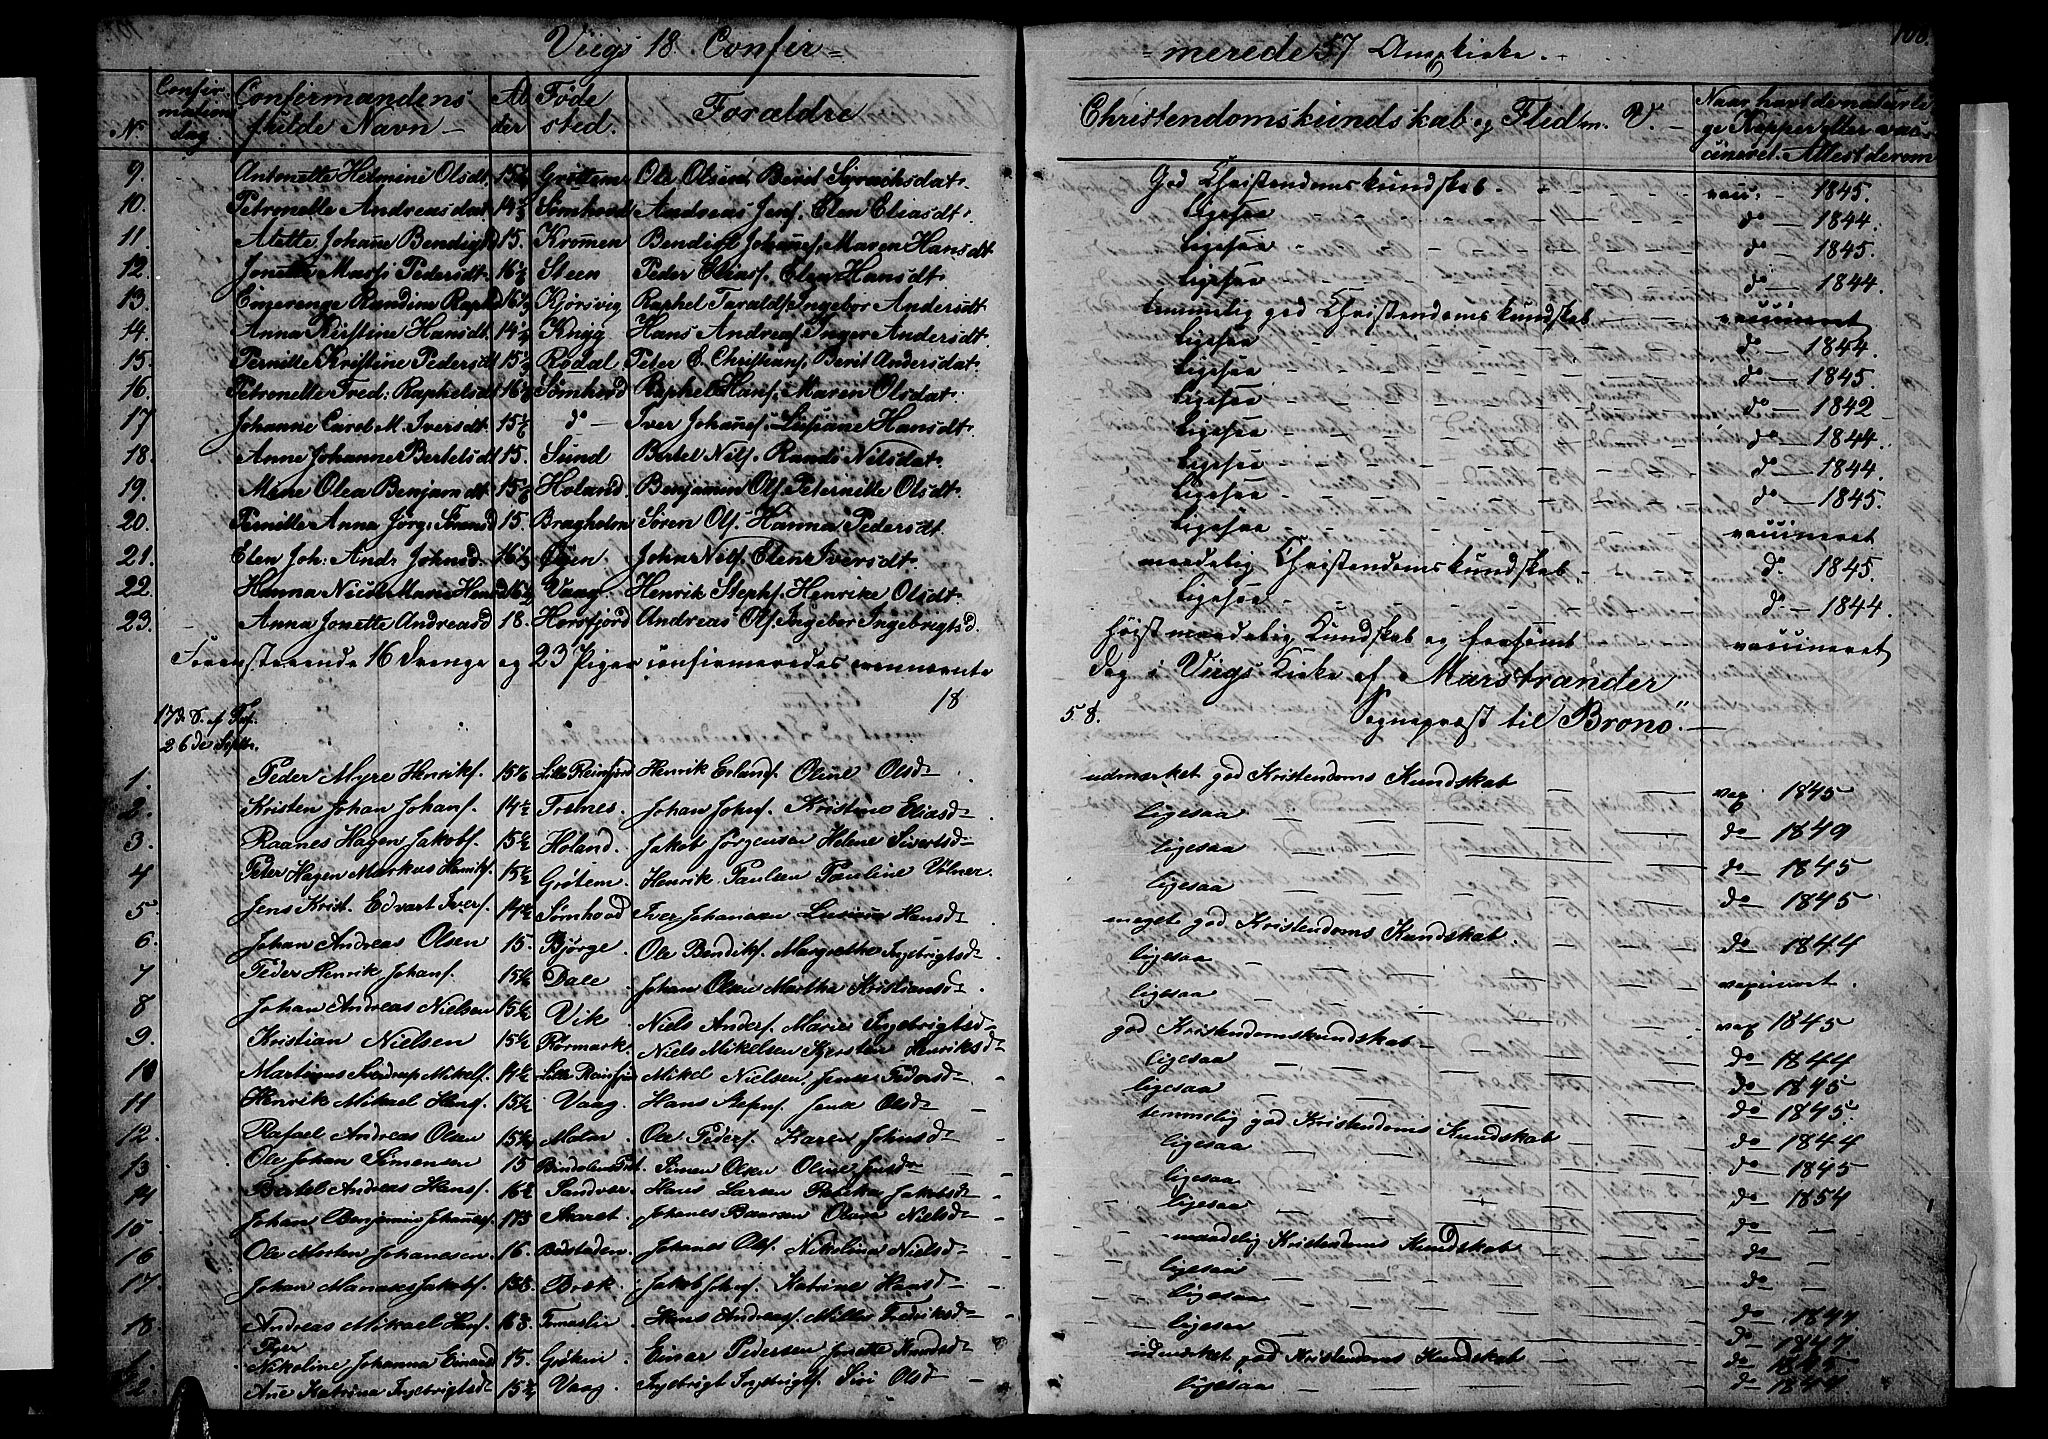 Viigs 18 Confir=
=merede 57 Annexkirke.
108.
N
Confirmations dag.
Confirmandens fulde Navn
Alder
Føde sted.
Forældre
Christendomskundskab og Flid m. V.
Naar havt de naturlige Kopper eller vaccineret. Attest derom
9. Antonette Helmine Olsdt. 15½ Grøttem Ole Olsen, Berit Syrachsdat. God Christendomskundskab. vacc. 1845.
10. Petronelle Andreasdat 14½ Sømhoved Andreas Jens. Elen Eliasdt. Ligesaa d° 1844.
11. Atette Johanne Bendigsd 15. Kromen Bendigt Johans. Maren Hansdt Ligesaa d° 1845.
12. Jonette Massi Pedersdt. 16½ Steen Peder Eliass. Elen Hansdt. Ligesaa d° 1844.
13. Engerenge Randine Raphd 16½ Kjørsvig Raphel Taralds. Ingebor Andersdt temmelig god Christendomskundskab vaccineret
14. Anna Kirstine Hansdt. 14½ Knigg Hans Andreas. Inger Andersdt. Ligesaa d° 1844.
15. Pernille Kristine Pedersdt 15½ Rødal Peter E. Christians. Berit Andersdat. Ligesaa d° 1845.
16. Petronelle Fred: Raphelsdt 16½ Sømhovd Raphel Hans. Maren Olsdat. Ligesaa d° 1842
17 Johanne Carol M. Iversdt. 15½ d° Iver Johans. Lusiane Hansdt. Ligesaa d° 1844.
18. Anne Johanne Bertelsdt 15. Sund Bertel Nils. Randi Nilsdat. Ligesaa d° 1844.
19. Mine Olea Benjamdt 15½ Holand Benjamin Ols. Peternille Olsdt. Ligesaa d° 1845.
20. Pernille Anna Jørg: Sørensd 15. Bragholm Søren Ols. Hanna Pedersdt. Ligesaa vaccineret
21. Elen Joh: Andr Johnsd. 16½ Øyen John Nils. Elen Iversdt. maadelig Christendomskundskab. d° 1845.
22. Hanna Nicol Marie Hensd 16½ Vaag Henrik Stephs. Henrike Olsdt. Ligesaa d° 1844.
23. Anna Jonette Andreasd 18. Horsfjord Andreas Ols. Ingebor Ingebrigtsd. høist maadelig Kundskab og forsømt vaccineret
Foranstaaende 16 Drenge og 23 Piger confirmeredes ovennævnte Dag i Viigs Kirke af Marstrander
18 58. Sognepræst til Brønø.
17de S. ef Tref. 26de Septbr.
1. Peder Myre Henriks. 15½ Lille Reinfjord Henrik Erlands. Oline Olsd udmærket god Kristendoms Kundskab vax 1845
2. Kristen Johan Johans. 14½ Trelnes. Johan Johns. Kristine Eliasd ligesaa d° 1849
3. Raanes Hagen Jakobs. 15½ Holand. Jakob Jørgensen Helene Sivertsd ligesaa d° 1845
4 Peter Hagen Markus Henriks. 15½ Grøtem. Henrik Paulsen Pauline Vølner. ligesaa d° 1845
5. Jens Krist. Edvart Ivers. 14½ Sømhovd Iver Johansen Lusiana Hansd meget god Kristendoms Kundskab. d° 1844
6. Johan Andreas Olsen 15. Bjørge. Ole Bendiks. Margrethe Ingebrigtsd ligesaa
7 Peder Henrik Johans. 15½ Dale Johan Olsen Martha Kristiansd ligesaa vaxineret.
8 Johan Andreas Nielsen 15½ Vik Niels Anders. Marie Ingebrigtsd god Kristendomskundskab vax 1845
9. Kristian Nielsen 15½ Rörmark. Niels Mikelsen Kjersten Henriksd ligesaa d° 1844
10 Martinus Sverdrup Mikels. 14½ Lille Reinfjor Mikel Nielsen. Pedersd ligesaa d° 1845
11 Henrik Mikael Hans. 15½ Vaag. Hans Olsd temmelig god Kristendoms Kundskab d° 1845
12. Rafael Andreas Olsen 15½ Ole Peders. Karen Johnsd ligesaa d° 1844
13 Ole Johan Simensen 15 Simen Olsen Oline Jensd ligesaa d° 1845
14 Bertel Andreas Hans. 16½ Sandver Hans Larsen Jakobsd ligesaa d° 1854
15 Johan Benjamin Johans. 17½ Skaret. Johanes Olava Nielsd maadelig Kristendoms Kundskab d°
16 Ole Morten Johanesen 16. Bøstaden. Johanes Ols. Nikolina Nielsd ligesaa d°
17. Johan Manases Jakobs. Bæk. Jakob Katrine Hansd ligesaa d°
18 Andreas Mikael Hans. Hans Andreas. Fredriksd ligesaa d° 1844
Piger
1. Nikoline Johanna Einarsd 15. Grøtem Einar Pedersen Jonetta Knudsd udmærket god Kristendoms Kundskab d° 1845
2 Ane Katrina Ingebrigtsd 15½ Vaag. Ingebrigt Ingebrigts. Siri Olsd ligesaa d° 1844